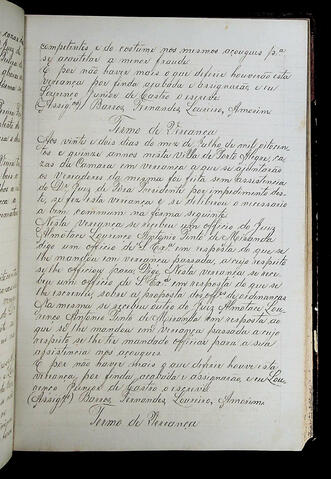 competentes e do costume nos mesmos açougues p.a
se acautelar a menor fraude.
E por não haver mais o que deferir houverão esta
veriança por finda acabada e assignarão, e eu
Lourenço Junior de Castro o escrevi
(Assig.os) Barros, Fernandes, Loureiro, Amorim
Termo de Viriança
Aos vinte e dois dias do mez de Julho de mil oitocen-
tos e quinze annos nesta villa de Porto Alegre, ca-
zas da Camara em veriança a que se ajuntarão
os Vereadores da mesma foi feita sem assistencia
do D.or Juiz de Fóra Presidente por impedimento des-
te, se fez esta veriança e se deliberou o necessario
a bem commum na forma seguinte
Nesta veriança se recebeu um officio do Juiz
Almotace Lourenço Antonio Pinto de Miranda
digo um officio de S. Ex.a em resposta do que se
lhe mandou em veriança passada, a cujo respeito
se lhe officiou para Digo Nesta veriança se rece-
beu um officio de S. Ex.a em resposta do que se
lhe escreveu sobre a proposta dos off.es de ordenanças
Na mesma se recebeu outro do Juiz Almotace Lou-
renço Antonio Pinto de Miranda em resposta ao
que se lhe mandou em veriança passada a cujo
respeito se lhe tir mandado officiar para a sua
assistencia aos açougues
E por não haver mais o que deferir houve esta
veriança por finda, acabada e assignarão, e eu Lou-
renço Junior de Castro o escrevi
(Assig.os) Barros, Fernandes, Loureiro, Amorim
Termo de Veriança